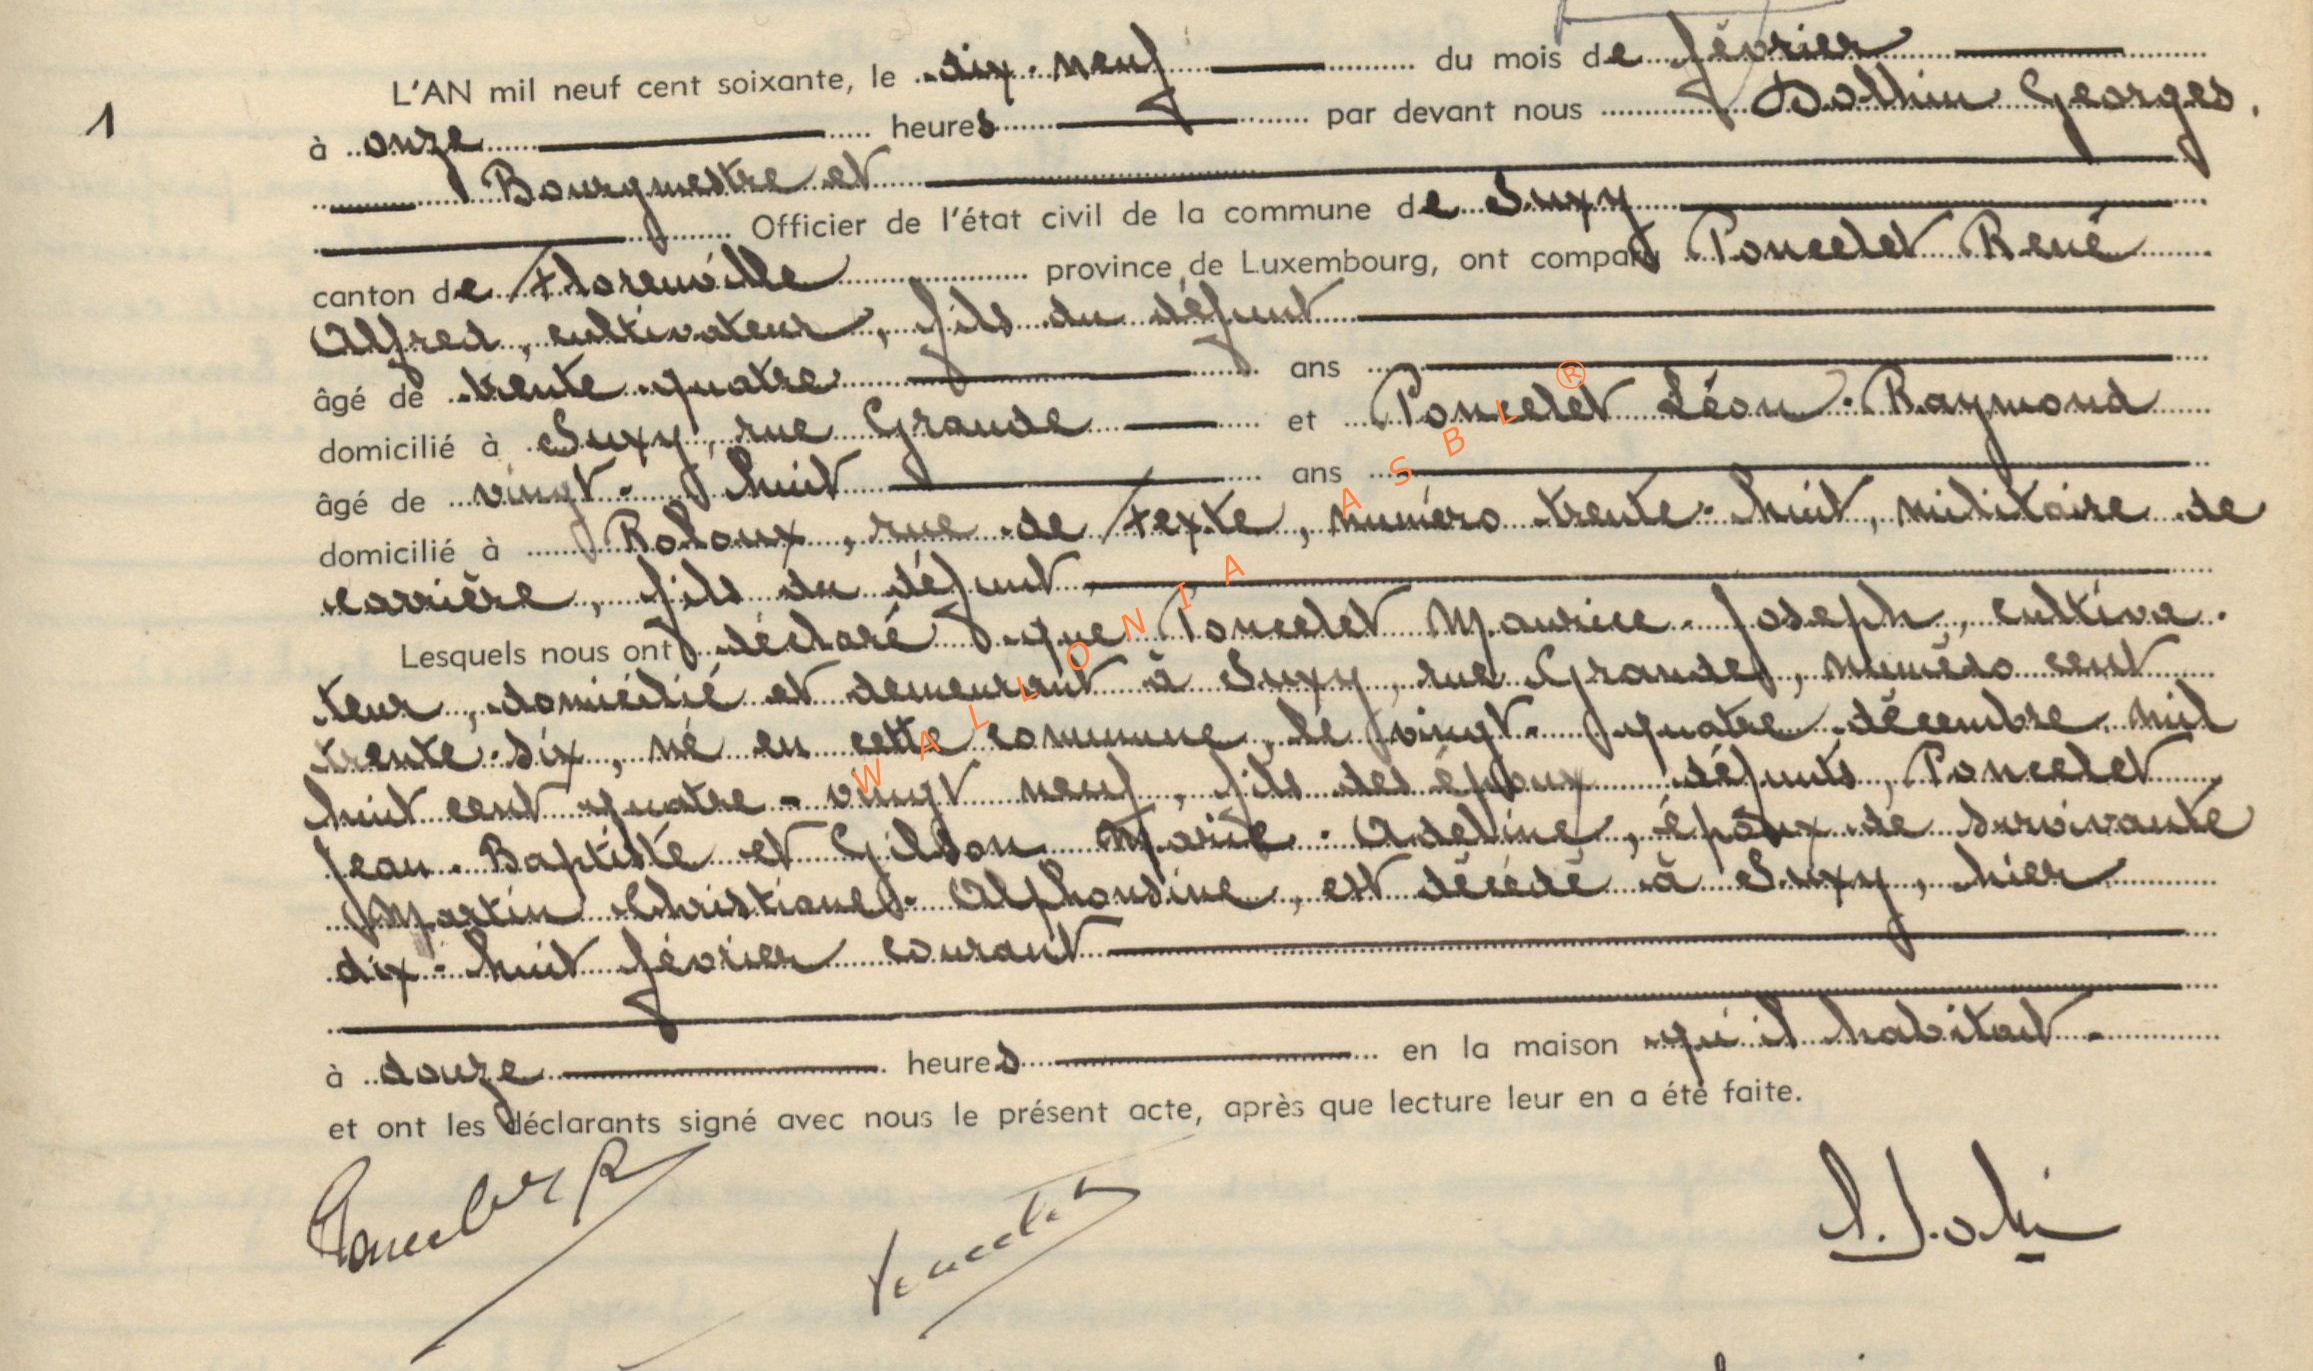 1
L'AN mil neuf cent soixante, le dix-neuf du mois de février
à onze heures par devant nous Georges,
Bourgmestre et
Officier de l'état civil de la commune de Suxy
canton de Florenville province de Luxembourg, ont comparu Poncelet René
Alfred, cultivateur, fils du défunt
âgé de trente-quatre ans
domicilié à Suxy, rue Grande et Poncelet Léon-Raymond
âgé de vingt-huit ans
domicilié à Roloux, rue de Fexhe, numéro trente-huit, militaire de
carrière, fils du défunt
Lesquels nous ont déclaré que Poncelet Maurice-Joseph, cultiva-
teur, domicilié et demeurant à Suxy, rue Grande, numéro cent
trente-six, né en cette commune, le vingt-quatre décembre mil
huit cent quatre-vingt neuf, fils des époux défunts, Poncelet
Jean-Baptiste et Gilson Marie-Adeline, époux de survivante
Martin Christiane-Alphonsine, est décédé à Suxy, hier
dix-huit février courant
à douze heures en la maison qu'il habitait.
et ont les déclarants signé avec nous le présent acte, après que lecture leur en a été faite.
Poncelet R Poncelet
WALLONIA ASBL ®